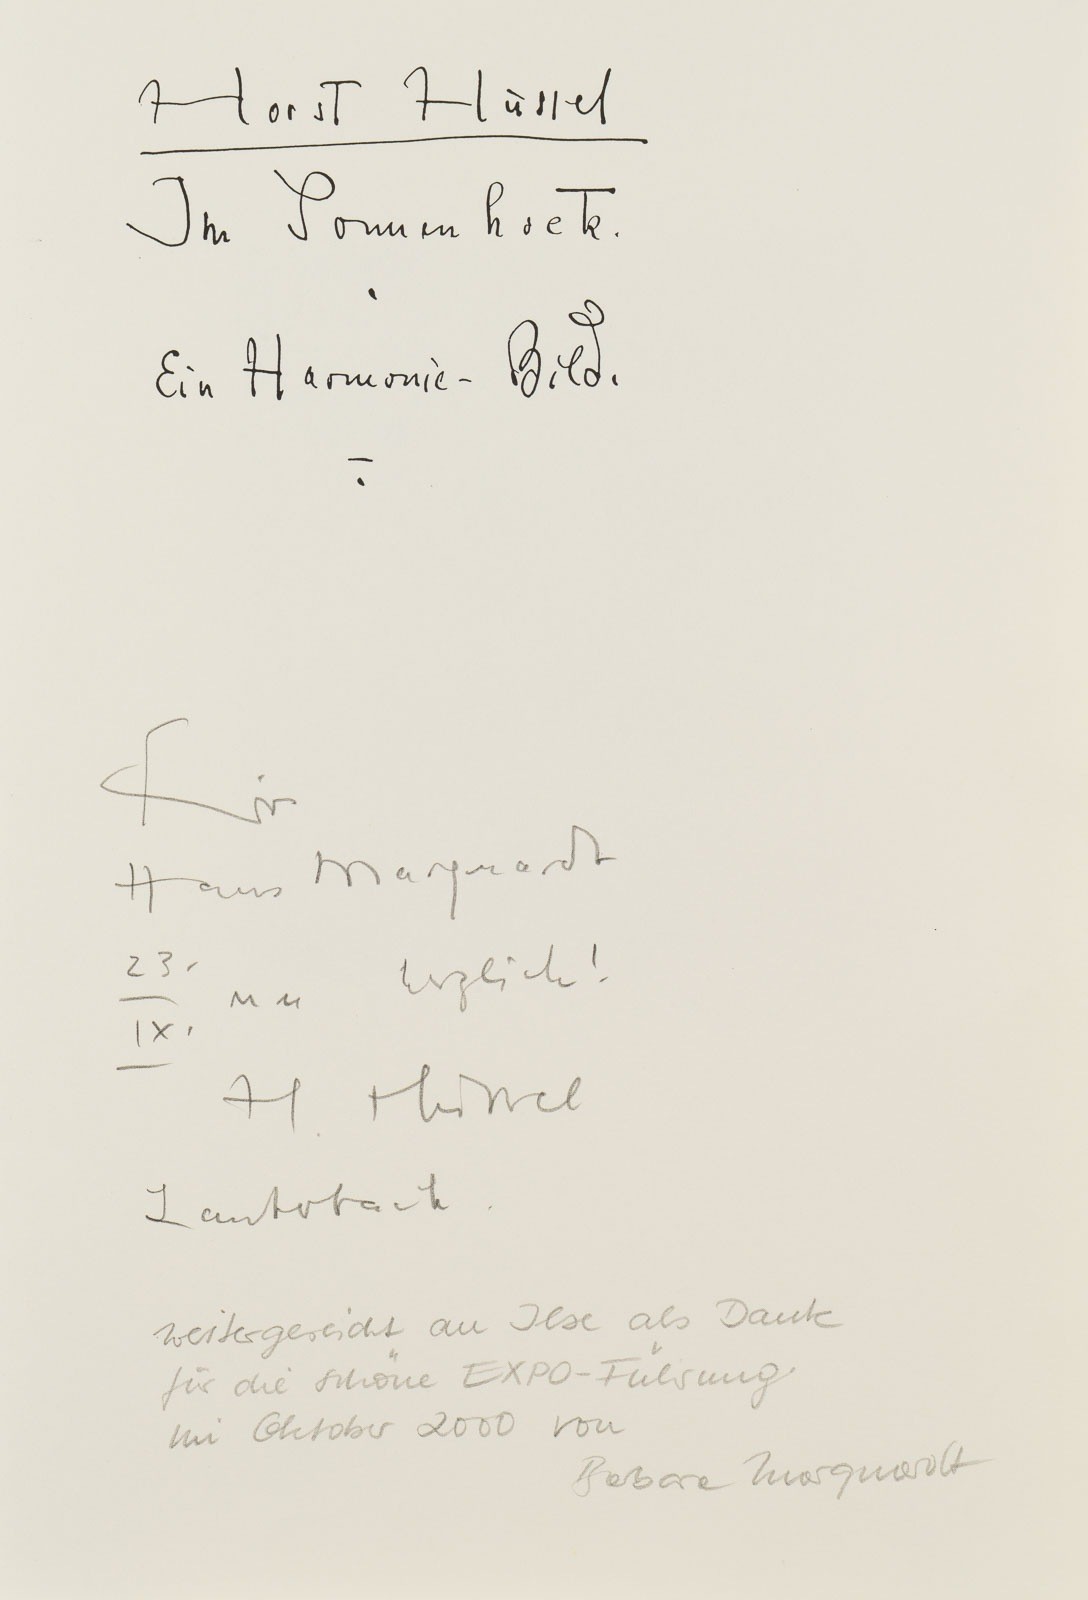 Horst Hüssel
Im Sonnenhoek.
Ein Harmonie-Bild.
Für
Hans Marquardt
23.
IX. herzlich!
H. Hüssel
Lauterbach.
weitergereicht an Ilse als Dank
für die schöne EXPO-Führung
im Oktober 2000 von
Barbara Marquardt